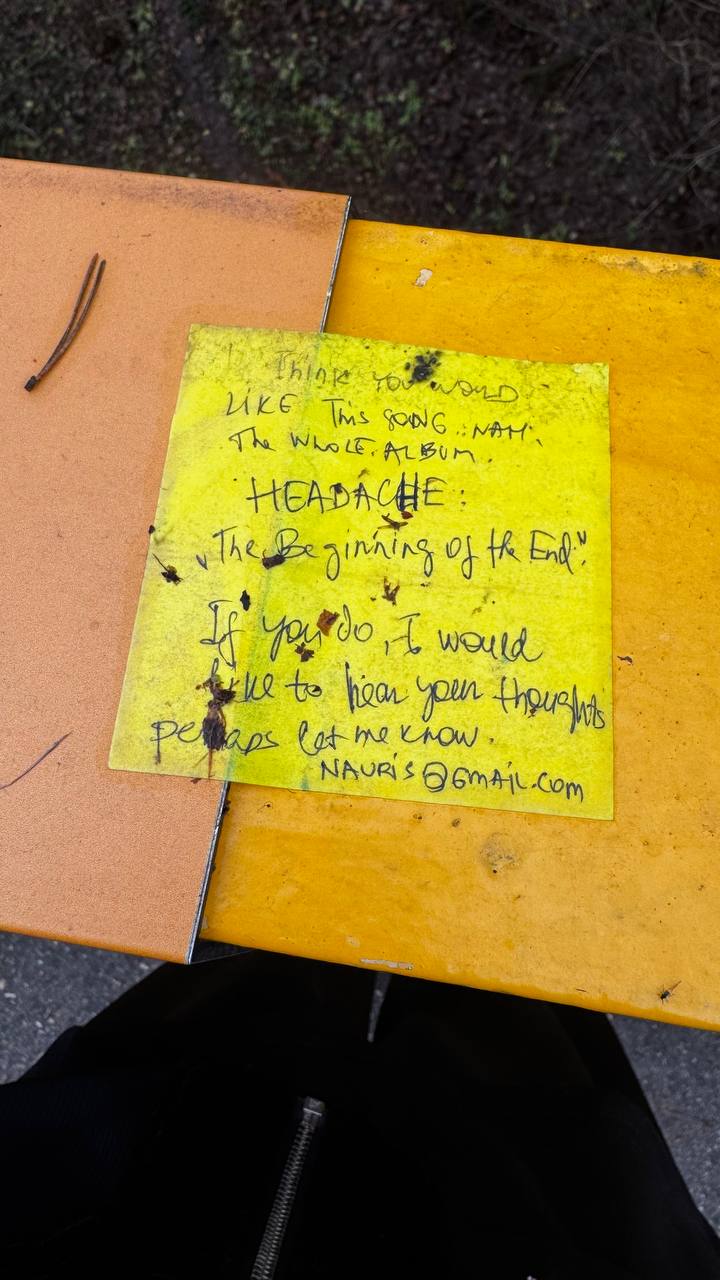 I Think YOU WOULD
LIKE This SONG. NAH.
The WHOLE. ALBUM.
HEADACHE:
„The Beginning of the End".
If you do, I would
like to hear your thoughts
perhaps let me know.
NAURIS@GMAIL.COM